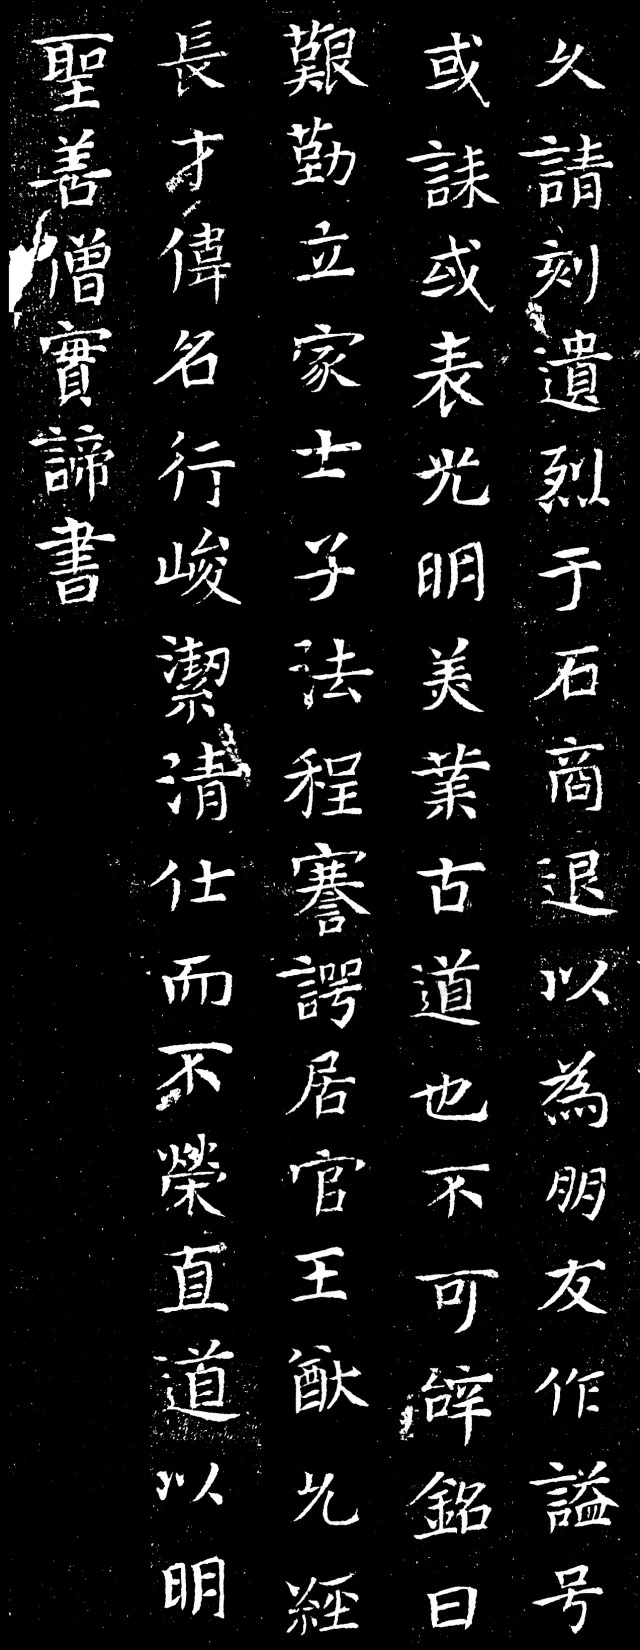 久請刻遺烈于石商退以為朋友作謚号
或誄或表光明美業古道也不可辝銘曰
艱勤立家士子法程謇諤居官王猷允經
長才偉名行峻潔清仕而不榮直道以明
聖善僧實諦書